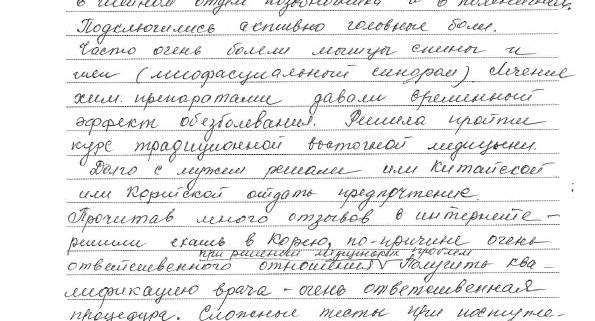 в шейном отделе позвоночника и в поясничном.
Подключились активно головные боли.
Часто очень болели мышцы спины и
шеи (миофасциальный синдром). Лечение
хим. препаратами давали временный
эффект обезболевания. Решила пройти
курс традиционной восточной медицины.
Долго с мужем решали или Китайской
или Корейской отдать предпочтение.
Прочитав много отзывов в интернете -
решили ехать в Корею, по-причине очень
при решении медицинских проблем
ответственного отношения V Получить ква-
лификацию врача - очень ответственная
процедура. Сложные тесты при поступле-